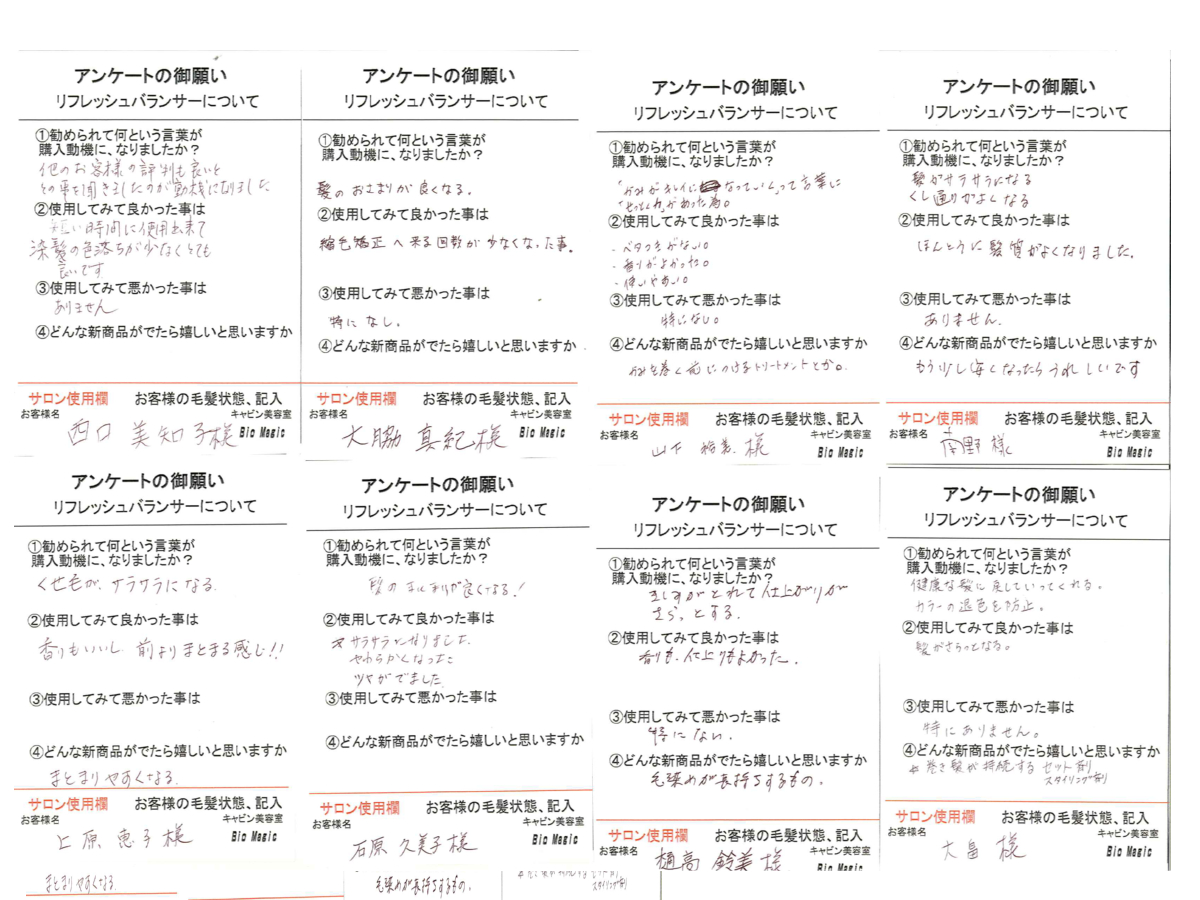 アンケートの御願い
リフレッシュバランサーについて
①勧められて何という言葉が
購入動機に、なりましたか？
他のお客様の評判も良いと
その事を聞きましたのが動機になりました
②使用してみて良かった事は
短い時間に使用出来て
染髪の色落ちが少なくとても
良いです
③使用してみて悪かった事は
ありません
④どんな新商品がでたら嬉しいと思いますか
サロン使用欄 お客様の毛髪状態、記入
お客様名 キャビン美容室
西口 美知子様 Bio Magic
アンケートの御願い
リフレッシュバランサーについて
①勧められて何という言葉が
購入動機に、なりましたか？
髪のおさまりが良くなる。
②使用してみて良かった事は
縮毛矯正へ来る回数が少なくなった事。
③使用してみて悪かった事は
特になし。
④どんな新商品がでたら嬉しいと思いますか
サロン使用欄 お客様の毛髪状態、記入
お客様名 キャビン美容室
大脇 真紀様 Bio Magic
アンケートの御願い
リフレッシュバランサーについて
①勧められて何という言葉が
購入動機に、なりましたか？
「かみがキレイになっていく」って言葉に
があった為。
②使用してみて良かった事は
・ベタつきがない。
・香りがよかった。
・使いやすい。
③使用してみて悪かった事は
特にない。
④どんな新商品がでたら嬉しいと思いますか
かみを巻く前につけるトリートメントとか。
サロン使用欄 お客様の毛髪状態、記入
お客様名 キャビン美容室
山下 様 Bio Magic
アンケートの御願い
リフレッシュバランサーについて
①勧められて何という言葉が
購入動機に、なりましたか？
髪がサラサラになる
くし通りがよくなる
②使用してみて良かった事は
ほんとうに髪質がよくなりました。
③使用してみて悪かった事は
ありません。
④どんな新商品がでたら嬉しいと思いますか
もう少し安くなったらうれしいです
サロン使用欄 お客様の毛髪状態、記入
お客様名 キャビン美容室
南野 様 Bio Magic
アンケートの御願い
リフレッシュバランサーについて
①勧められて何という言葉が
購入動機に、なりましたか？
くせ毛が、サラサラになる
②使用してみて良かった事は
香りもいいし、前よりまとまる感じ!!
③使用してみて悪かった事は
④どんな新商品がでたら嬉しいと思いますか
まとまりやすくなる
サロン使用欄 お客様の毛髪状態、記入
お客様名 キャビン美容室
上原 恵子様 Bio Magic
アンケートの御願い
リフレッシュバランサーについて
①勧められて何という言葉が
購入動機に、なりましたか？
髪のまとまりが良くなる!
②使用してみて良かった事は
サラサラになりました
やわらかくなった
ツヤがでました
③使用してみて悪かった事は
④どんな新商品がでたら嬉しいと思いますか
サロン使用欄 お客様の毛髪状態、記入
お客様名 キャビン美容室
石原 久美子様 Bio Magic
アンケートの御願い
リフレッシュバランサーについて
①勧められて何という言葉が
購入動機に、なりましたか？
きしずがとれて仕上がりが
さらっとする。
②使用してみて良かった事は
香りも、仕上りもよかった。
③使用してみて悪かった事は
特にない。
④どんな新商品がでたら嬉しいと思いますか
毛染めが長持ちするもの。
サロン使用欄 お客様の毛髪状態、記入
お客様名 キャビン美容室
樋高 鈴美 様 Bio Magic
アンケートの御願い
リフレッシュバランサーについて
①勧められて何という言葉が
購入動機に、なりましたか？
健康な髪に戻していってくれる。
カラーの退色を防止。
②使用してみて良かった事は
髪がさらっとなる。
③使用してみて悪かった事は
特にありません。
④どんな新商品がでたら嬉しいと思いますか
巻き髪が持続するセット剤
スタイリング剤
サロン使用欄 お客様の毛髪状態、記入
お客様名 キャビン美容室
大畠 様 Bio Magic
まとまりやすくなる
毛染めが長持ちするもの。
スタイリング剤